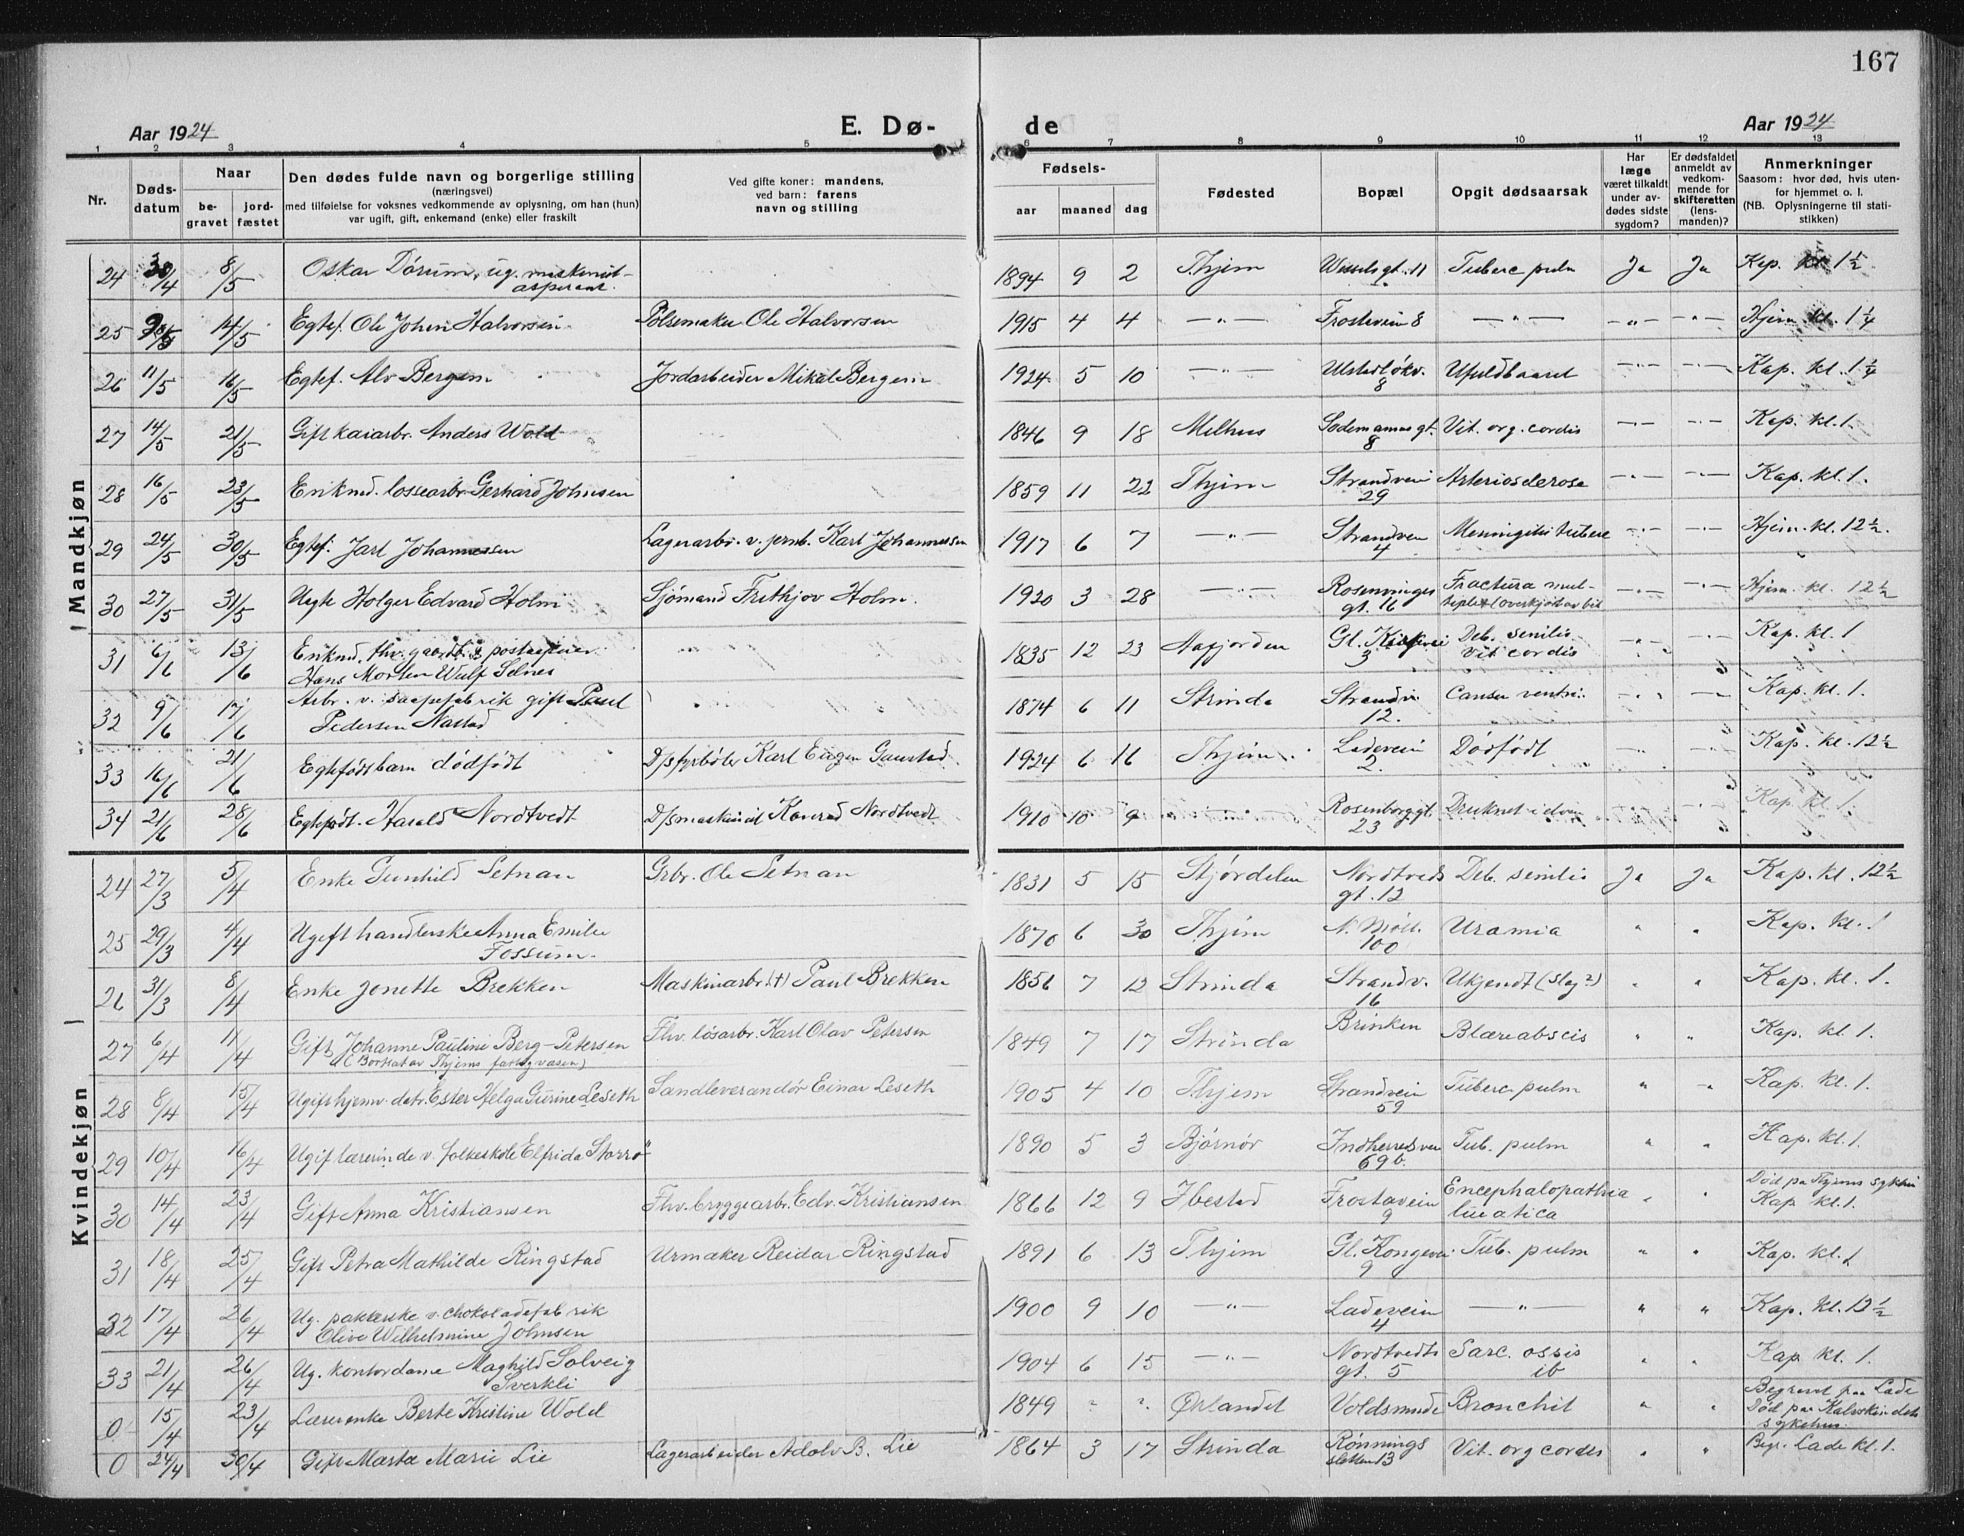 167
Aar 1924 E. Dø- de Aar 1924
1 2 3 4 5 6 7 8 9 10 11 12 13
Nr. Døds-datum Naar begravet jordfæstet Den dødes fulde navn og borgerlige stilling (næringsvei) med tilføielse for voksnes vedkommende av oplysning, om han (hun) var ugift, gift, enkemand (enke) eller fraskilt Ved gifte koner: mandens, ved barn: farens navn og stilling Fødsels- aar maaned dag Fødested Bopæl Opgit dødsaarsak Har læge været tilkaldt under avdødes sidste sygdom? Er dødsfaldet anmeldt av vedkommende for skifteretten (lensmanden)? Anmerkninger Saasom: hvor død, hvis utenfor hjemmet o. l. (NB. Oplysningerne til statistikken)
Mandkjøn
24 30/4 8/5 Oskar Dørum, ug. maskinist-aspirant. 1894 9 2 Thjem Wesselsgt. 11 Tuberc pulm Ja Ja Kap. 1 1/2
25 14/5 Egtef. Ole Johan Halvorsen Pølsemaker Ole Halvorsen 1915 4 4 —"— Frostavein 8 —"— —"— —"— Hjem kl. 1 1/4
26 11/5 16/5 Egtef. Alv Bergem Jordarbeider Mikal Bergem 1924 5 10 —"— 8 Ufuldbaaret —"— —"— Kap. kl. 1 1/4
27 14/5 21/5 Gift kaiarbr. Anders Wold 1846 9 18 Melhus Sodemannsgt. 8 Vit. org. cordis —"— —"— Kap. kl. 1.
28 16/5 23/5 Enkmd. lossearbr Gerhard Johnsen 1859 11 22 Thjem Strandvein 29 Arteriosclerose —"— —"— Kap. kl. 1.
29 24/5 30/5 Egtef. Jarl Johannessen Lagerarbr. v. jernb. Karl Johannessen 1917 6 7 —"— Strandvein 4 Meningitis tuberc —"— —"— Hjem. kl. 12 1/2.
30 27/5 31/5 Uegte Holger Edvard Holm Sjømand Frithjov Holm. 1920 3 28 —"— gt. 16 Fractura multiple (overkjørt av bil —"— —"— Hjem. kl. 12 1/2
31 6/6 13/6 Enkmd. fhv. gaardbr. & Hans Morten Wulf Selnes 1835 12 23 Aafjorden Gl. 3 Deb. senilis Vit cordis —"— —"— Kap. kl. 1
32 9/6 17/6 Arbr. v. saapefabrik gift Paul Pedersen Nastad 1874 6 11 Strinda Strandv. 12. Cancer ventri. —"— —"— Kap. kl. 1.
33 16/6 21/6 Egtefødt barn dødfødt D/s fyrbøter Karl Eugen Gaustad 1924 6 16 Thjem Ladevein 2. Dødfødt —"— —"— Kap. kl. 12 1/2
34 21/6 28/6 Egtefødt. Harald Nordtvedt D/s maskinist Konrad Nordtvedt 1910 10 9 —"— Rosenborggt. 23 Druknet i elven —"— —"— Kap. kl. 1.
Kvindekjøn
24 27/3 5/4 Enke Gunhild Setnan Grbr. Ole Setnan 1831 5 15 Stjørdalen Nordtveds gt. 12 Deb. senilis Ja Ja Kap. kl. 12 1/2
25 29/3 4/4 Ugift handlerske Anna Emilie Fossum. 1870 6 30 Thjem N. Møll. 100 Uræmia " " Kap. kl. 1
26 31/3 8/4 Enke Jonette Brekken Maskinarbr. (†) Paul Brekken 1851 7 12 Strinda Strandv. 16 Ukjendt (slag?) " " Kap. kl. 1.
27 6/4 11/4 Gift Johanne Pauline Berg-Petersen Fhv. løsarbr. Karl Olav Petersen 1849 7 17 Strinda Brinken Blæreabscis " " Kap. kl. 1
(Bortsat av Thjems fattigvæsen)
28 8/4 15/4 Ugift hjemv. datr. Ester Helga Gurine Leseth Sandleverandør Einar Leseth 1905 4 10 Thjem Strandvein 59 Tuberc pulm " " Kap. kl. 1.
29 10/4 16/4 Ugift lærerinde v. folkeskole Elfrida Storrø 1890 5 3 Bjørnør Indherredsvein 69 b. Tub. pulm " " Kap. kl. 1.
30 14/4 23/4 Gift Anna Kristiansen Fhv. bryggearbr. Edv. Kristiansen 1866 12 9 Ibestad Frostavein 9 Encephalopathia luetica " " Død paa Thjems sykehus Kap kl. 1.
31 18/4 25/4 Gift Petra Mathilde Ringstad Urmaker Reidar Ringstad 1891 6 13 Thjem Gl. Kongevei 9 Tub. pulm " " Kap. kl. 1
32 17/4 26/4 Ug. pakkerske v. chokoladefabrik Olive Wilhelmine Johnsen 1900 9 10 —"— Ladevein 4 —"— " " Kap. kl. 12 1/2
33 21/4 26/4 Ug. kontordame Maghild Solveig Sverkli 1904 6 15 —"— Nordtvedts gt. 5 Sarc. ossis ib " " Kap kl. 1.
0 15/4 23/4 Lærerenke Berte Kristine Wold 1849 " " Ørlandet Voldsminde Bronchit " " Begravet paa Lade Død paa Kalvskindets sykehus.
0 24/4 30/4 Gift Marta Marie Lie Lagerarbeider Adolv B. Lie 1864 3 17 Strinda Rønnings sletten 13 Vit. org cordis " " Begr. Lade kl. 1.